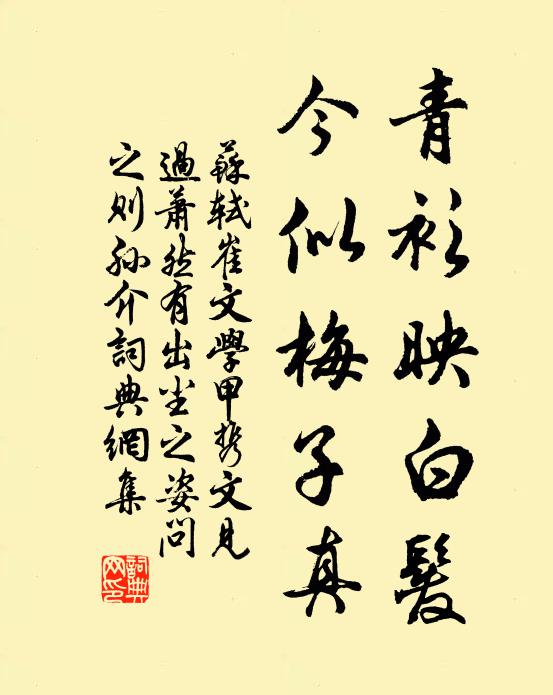 青衫映白髮
今似梅子真
蘇軾崔文學甲携文見
過蕭然有出尘之姿問
之则孙介詞典網集
詞典
网印